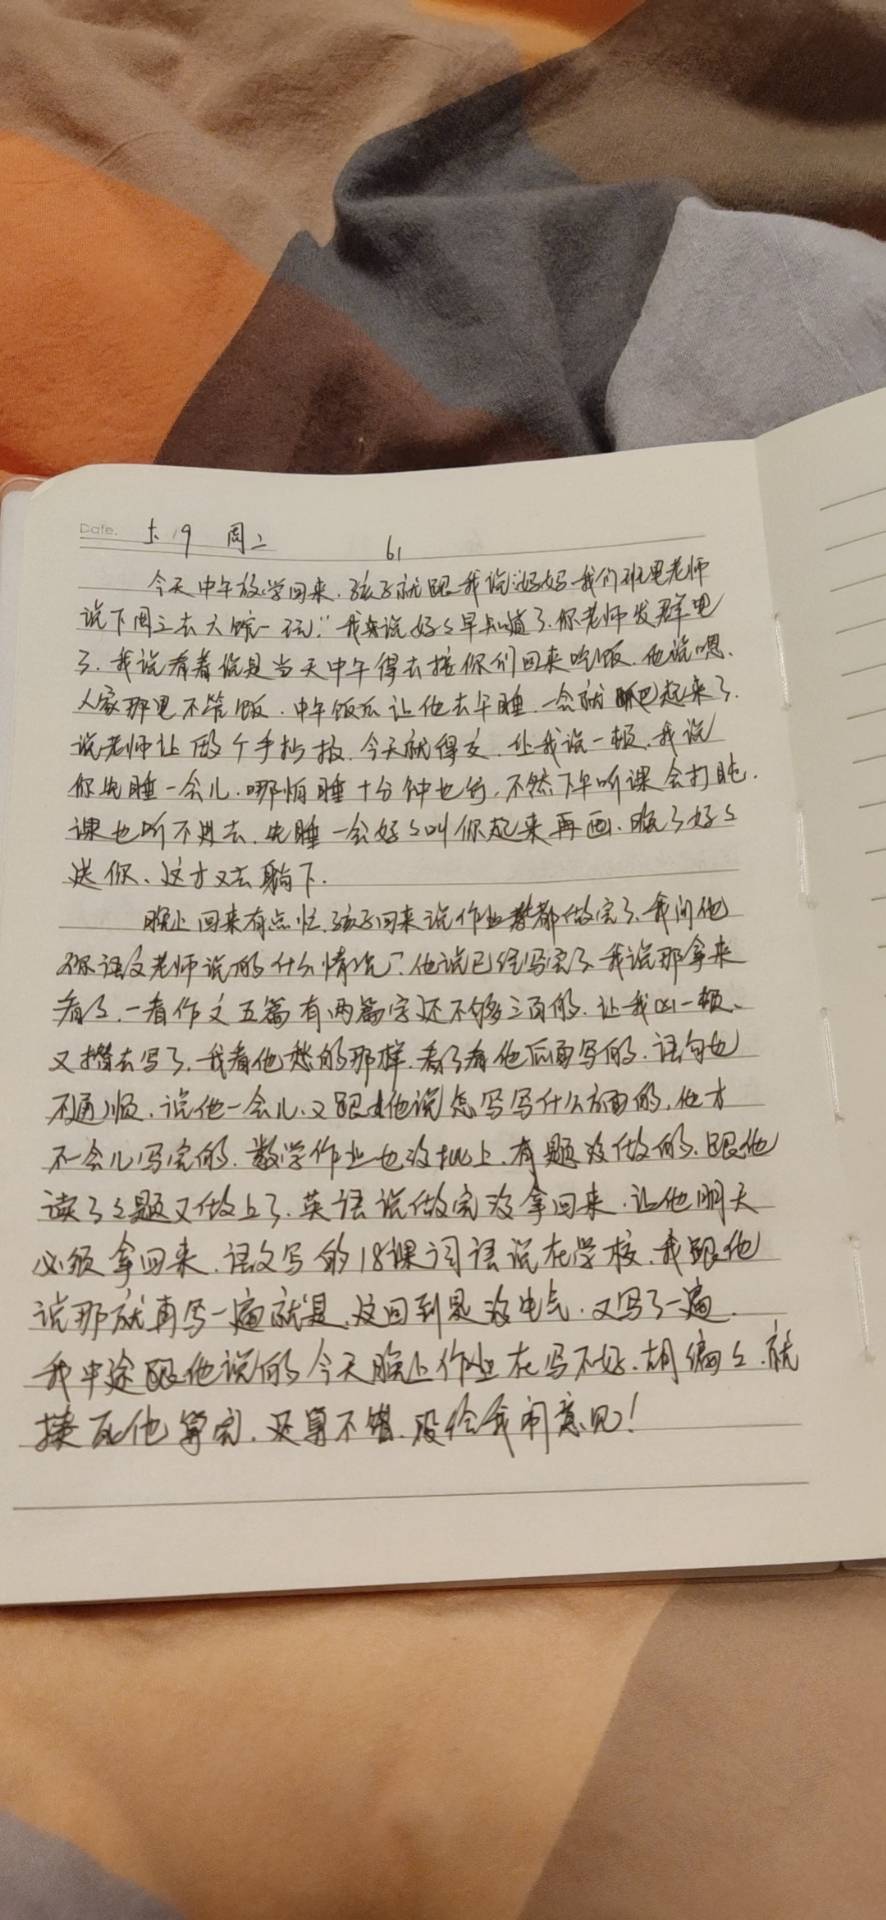 Date. 5.19 周二 61
今天中午放学回来.孩子就跟我说:"妈妈.我们班里老师
说下周三去大馆一玩."我来说好好早知道了.你老师发群里
了.我说看着信息当天中午得去接你们回来吃饭.他说嗯.
人家那里不管饭.中午饭后让他去午睡.一会就爬起来了.
说老师让做个手抄报.今天就得交.让我说一顿.我说
你先睡一会儿.哪怕睡十分钟也行.不然下午听课会打盹.
课也听不进去.先睡一会好好叫你起来再画.晚了好好
送你、这才又去躺下.
晚上回来有点忙.孩子回来说作业都做完了.我问他
你语文老师说的什么情况?他说已经写完了.我说那拿来
看看.一看作文五篇有两篇字还不够三百的.让我一顿、
又撵去写了.我看他愁的那样.看了看他后面写的.语句也
不通顺.说他一会儿.又跟他说怎写写什么方面的,他才
不一会儿写完的.数学作业也没批上.有题没做的.跟他
读了读题又做上了.英语说做完没拿回来.让他明天
必须拿回来.语文写的18课词语说在学校.我跟他
说那就再写一遍就是.这回到是没生气.又写了一遍.
我中途跟他说的今天晚上作业在写不好.胡编编.就
揍死他算完.还算不错.没给我闹意见!